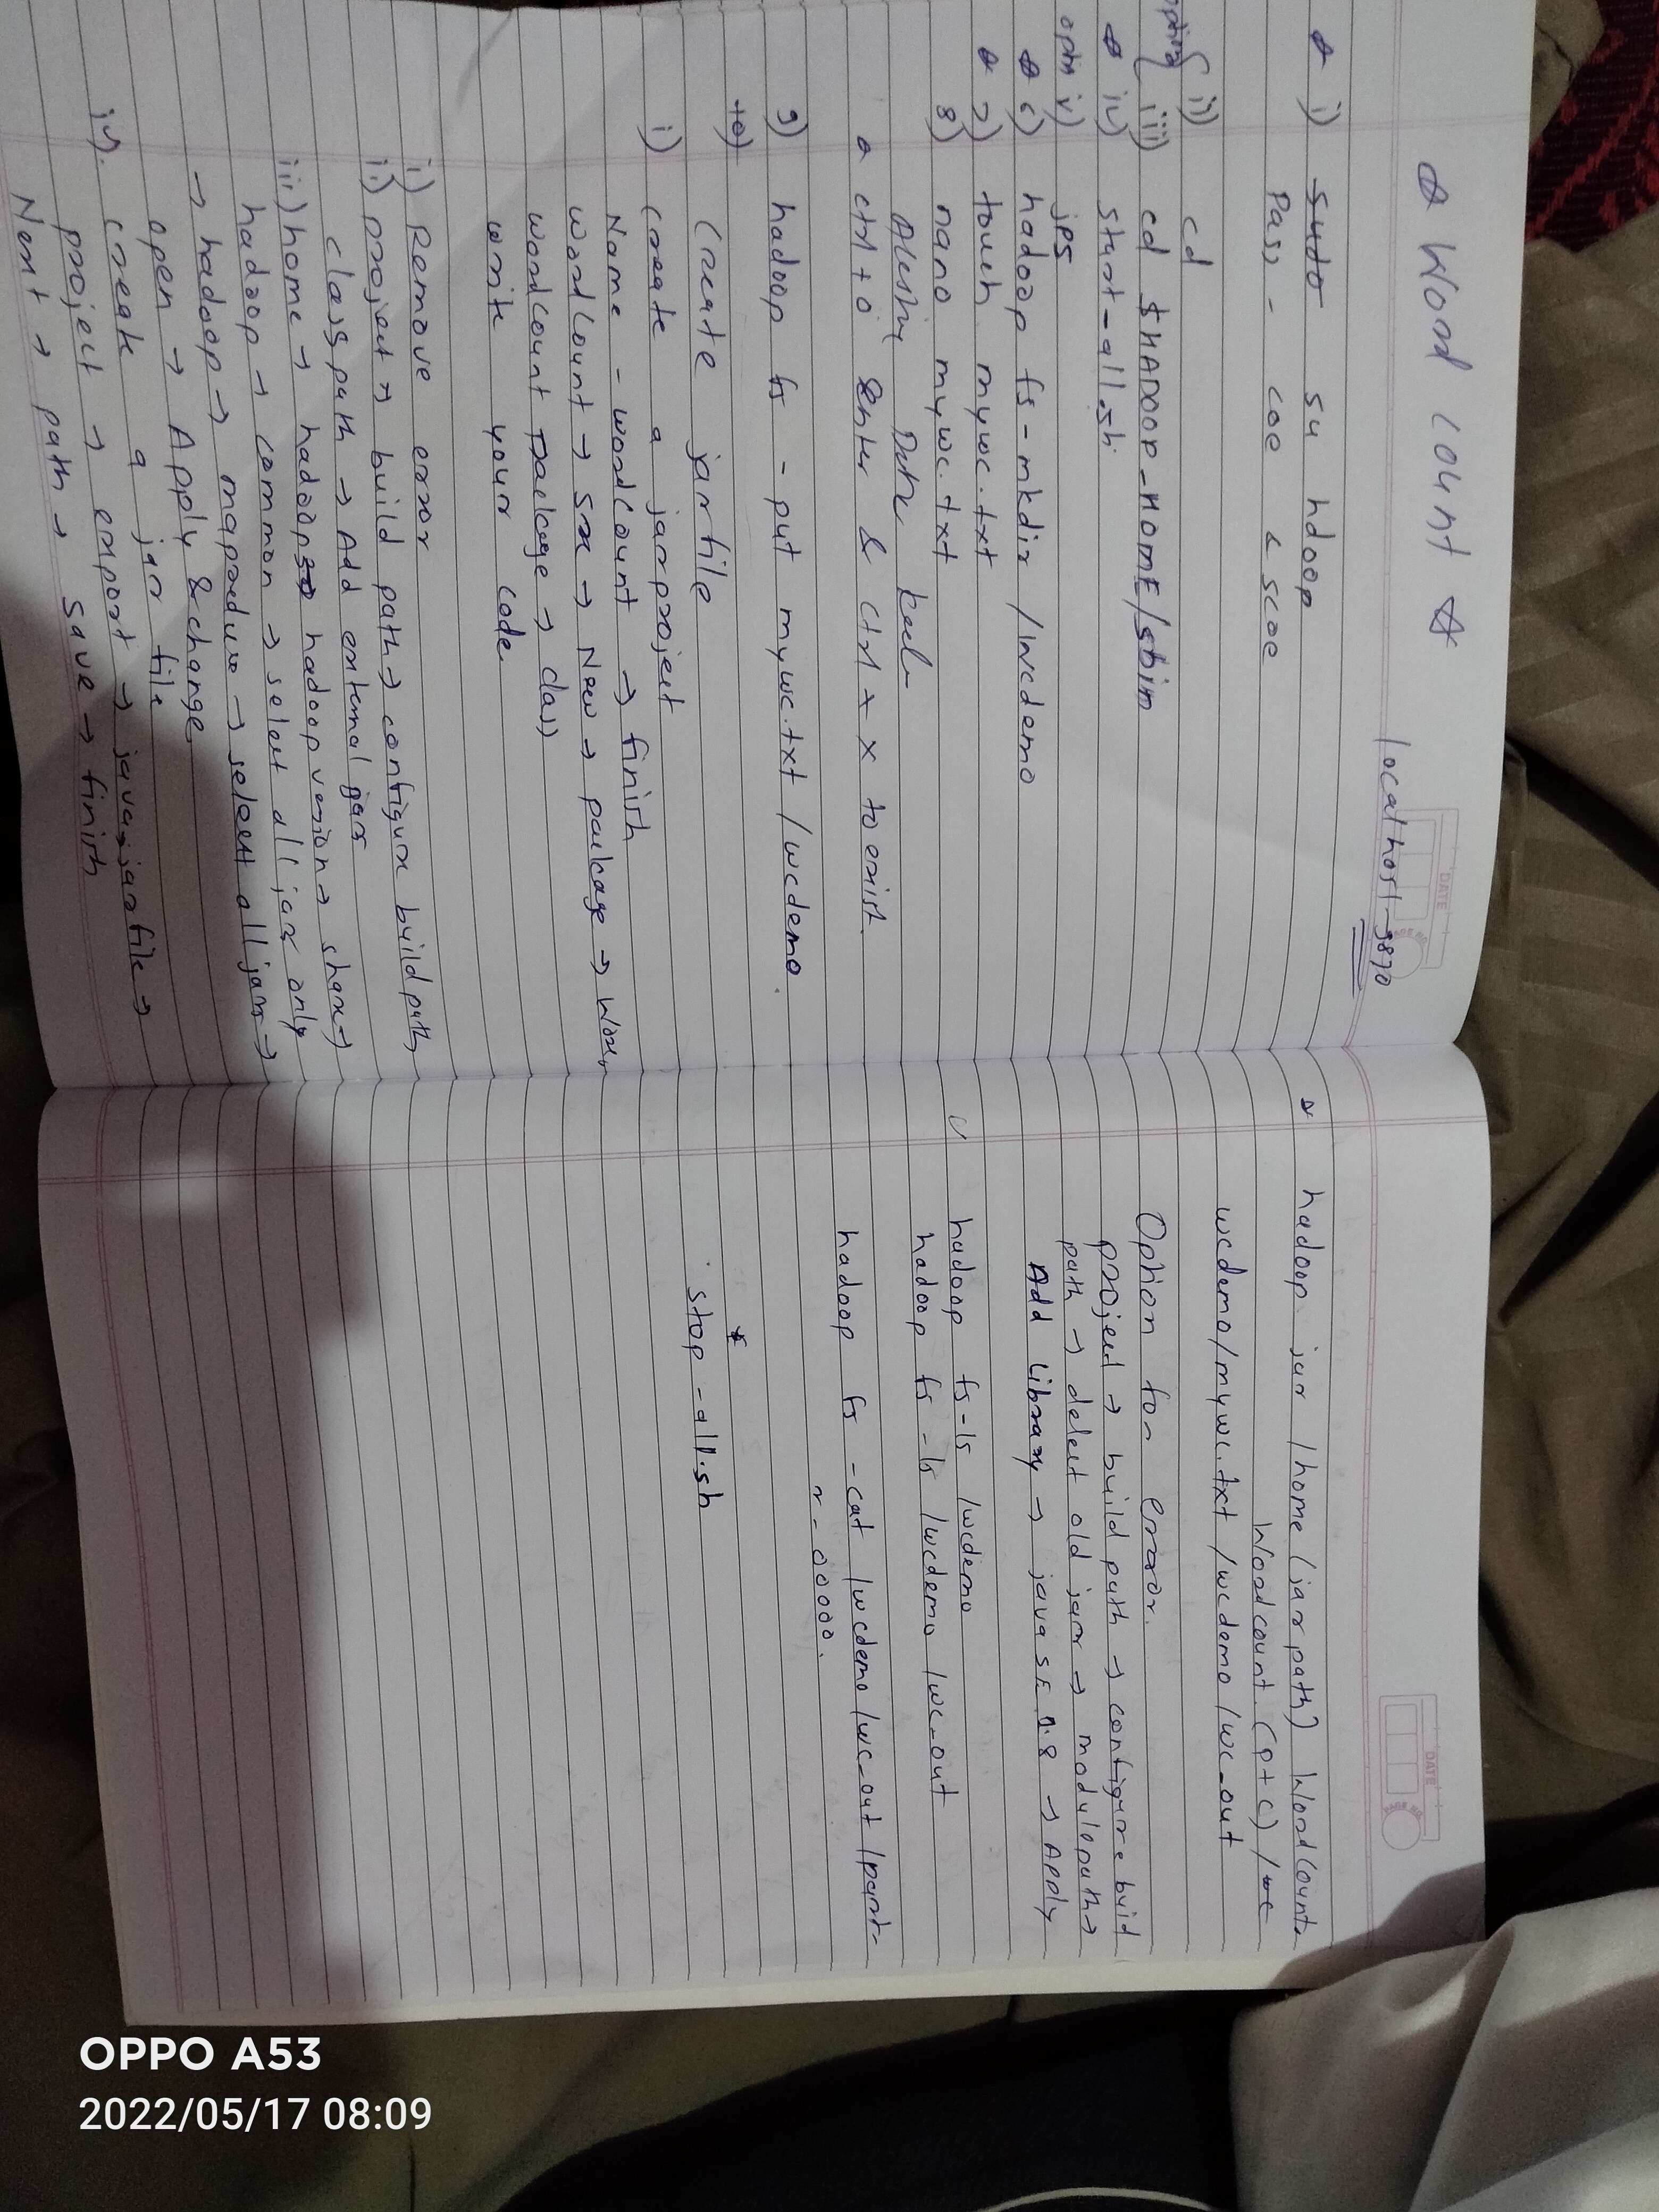 ☆ Word Count ☆
localhost-9870
DATE
PAGE NO.
☆ i) sudo su hdoop
Pass - coe & scoe
option { ii) cd
iii) cd $HADOOP_HOME/sbin
☆ iv) start-all.sh
optn v) jps
☆ 6) hadoop fs -mkdir /wcdemo
☆ 7) touch mywc.txt
8) nano mywc.txt
☆ ctrl + o Enter & ctrl + x to exist.
9) hadoop fs -put mywc.txt /wcdemo
10)
Create jarfile
i) Create a jarproject
Name - wordCount → finish
wordCount → src → New → package → word
wordCount package → class
write your code.
i) Remove error
ii) project → build path → configure build path
class path → Add external jars
iii) home → hadoop → hadoop version → share →
hadoop → common → select all jars only
→ hadoop → mapreduce → select all jars →
open → Apply & change
iv). create a jar file
project → export → java → jarfile →
Next → path → save → finish
DATE
PAGE NO.
☆ hadoop jar /home (jar path) WordCount.
Wordcount (p+c) /wc
wcdemo/mywc.txt /wcdemo/wc_out
Option for error.
project → build path → configure buid
path → delect old jar → modulepath →
Add Library → java SE 1.8 → Apply
hadoop fs -ls /wcdemo
hadoop fs -ls /wcdemo /wc_out
hadoop fs -cat /wcdemo/wc_out/part-
r-00000.
*
stop -all.sh
OPPO A53
2022/05/17 08:09